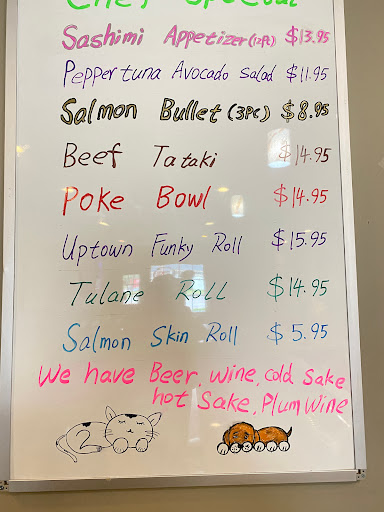 Chef Special
Sashimi Appetizer (12pt) $13.95
Pepper tuna Avocado Salad $11.95
Salmon Bullet (3PC) $8.95
Beef Tataki $14.95
Poke Bowl $14.95
Uptown Funky Roll $15.95
Tulane Roll $14.95
Salmon Skin Roll $5.95
We have Beer, wine, cold Sake
hot Sake, Plum Wine